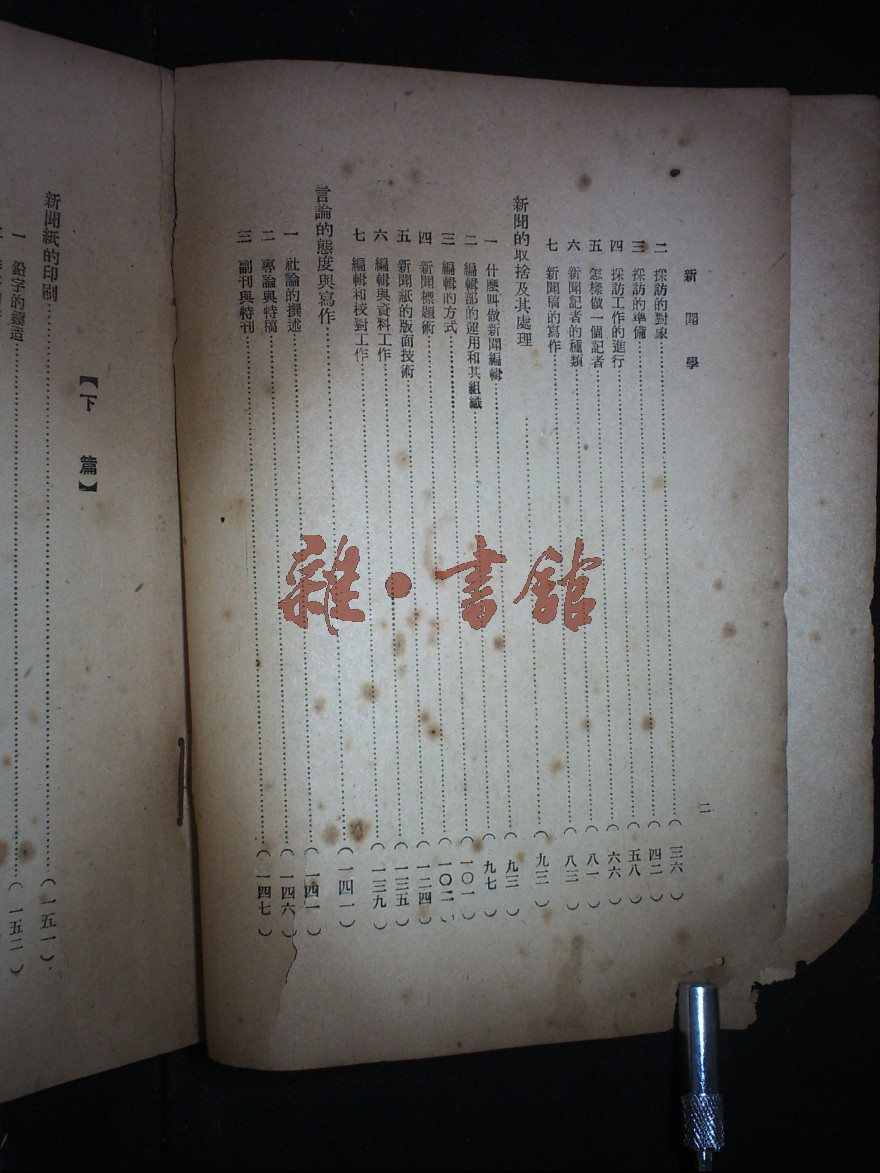 新聞學
二
二 採訪的對象(三六)
三 採訪的準備(四二)
四 採訪工作的進行(五八)
五 怎樣做一個記者(六六)
六 新聞記者的種類(八一)
七 新聞稿的寫作(八三)
新聞的取捨及其處理(九三)
一 什麼叫做新聞編輯(九三)
二 編輯部的運用和其組織(九七)
三 編輯的方式(一〇一)
四 新聞標題術(一〇二)
五 新聞紙的版面技術(一二四)
六 編輯與資料工作(一三五)
七 編輯和校對工作(一三九)
言論的態度與寫作(一四一)
一 社論的撰述(一四一)
二 專論與特稿(一四六)
三 副刊與特刊(一四七)
【下篇】
新聞紙的印刷(一五一)
一 鉛字的鑄造(一五二)
雜·書館